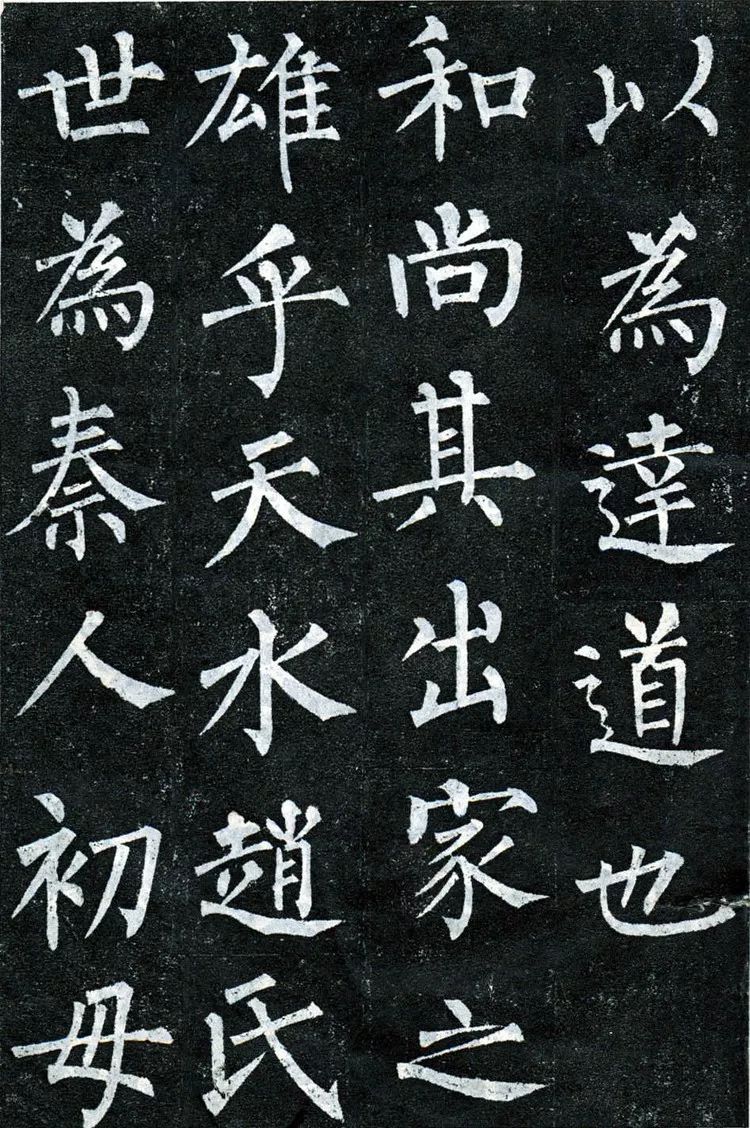 以為達道也
和尚其出家之
雄乎天水趙氏
世為秦人初母